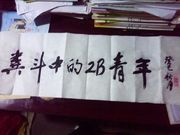 粪斗中的2B青年